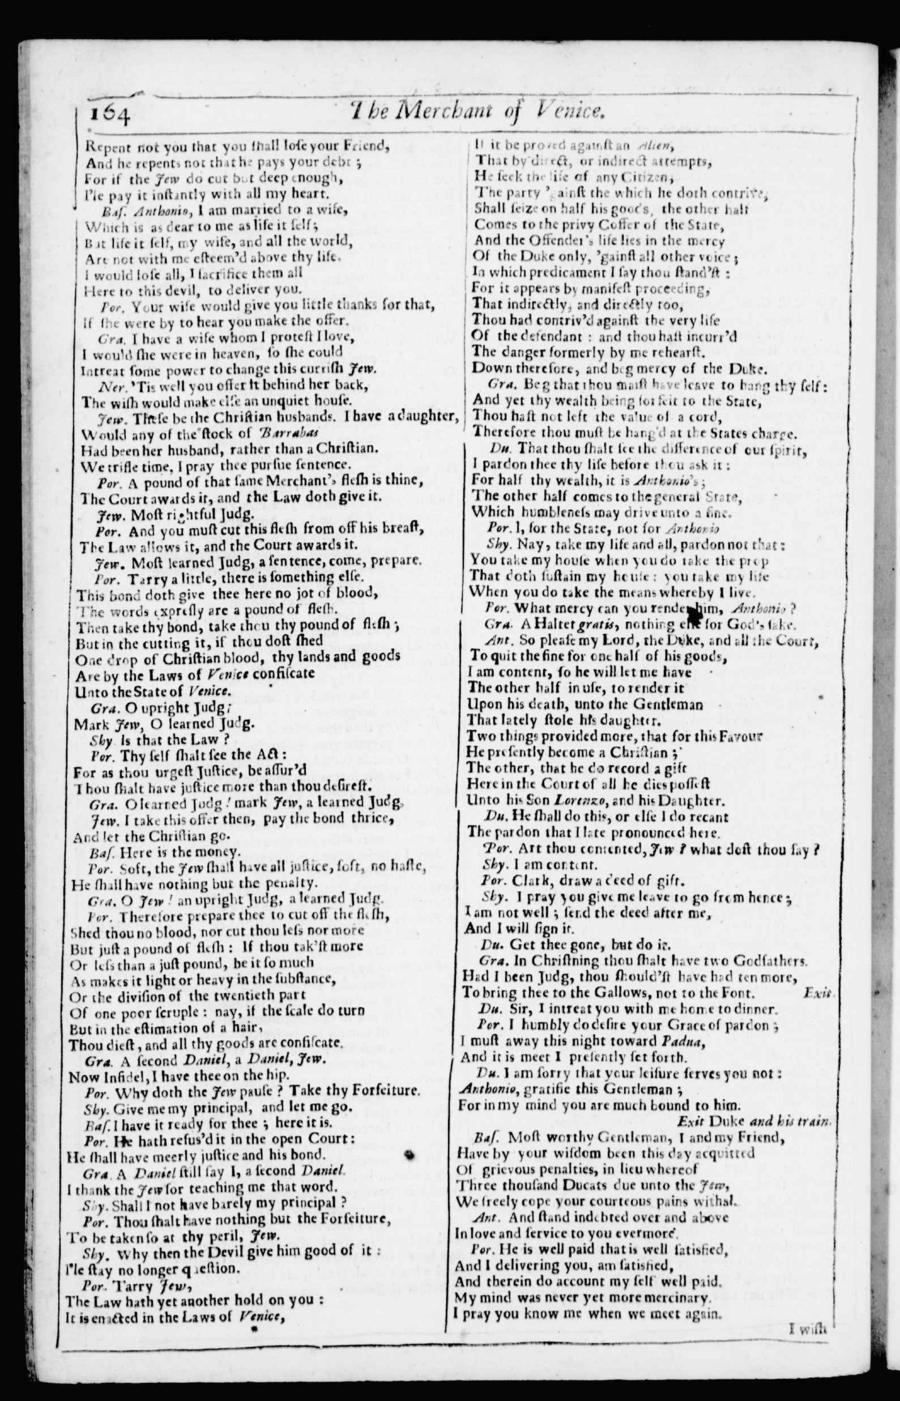 164
The Merchant of Venice.
Repent not you that you ſhall loſe your Friend,
And he repents not that he pays your debt ;
For if the Jew do cut but deep enough,
I'le pay it inſtantly with all my heart.
Baſ. Anthonio, I am married to a wife,
Which is as dear to me as life it ſelf;
But life it ſelf, my wife, and all the world,
Are not with me eſteem'd above thy life.
I would loſe all, I ſacrifice them all
Here to this devil, to deliver you.
Por. Your wife would give you little thanks for that,
If ſhe were by to hear you make the offer.
Gra. I have a wife whom I proteſt I love,
I would ſhe were in heaven, ſo ſhe could
Intreat ſome power to change this curriſh Jew.
Ner. 'Tis well you offer it behind her back,
The wiſh would make elſe an unquiet houſe.
Jew. Theſe be the Chriſtian husbands. I have a daughter,
Would any of the ſtock of Barrabas
Had been her husband, rather than a Chriſtian.
We trifle time, I pray thee purſue ſentence.
Por. A pound of that ſame Merchant's fleſh is thine,
The Court awards it, and the Law doth give it.
Jew. Moſt rightful Judg.
Por. And you muſt cut this fleſh from off his breaſt,
The Law allows it, and the Court awards it.
Jew. Moſt learned Judg, a ſentence, come, prepare.
Por. Tarry a little, there is ſomething elſe.
This bond doth give thee here no jot of blood,
The words expreſly are a pound of fleſh.
Then take thy bond, take thou thy pound of fleſh ;
But in the cutting it, if thou doſt ſhed
One drop of Chriſtian blood, thy lands and goods
Are by the Laws of Venice confiſcate
Unto the State of Venice.
Gra. O upright Judg;
Mark Jew, O learned Judg.
Shy Is that the Law ?
Por. Thy ſelf ſhalt ſee the Act :
For as thou urgeſt Juſtice, be aſſur'd
Thou ſhalt have juſtice more than thou deſireſt.
Gra. O learned Judg ! mark Jew, a learned Judg.
Jew. I take this offer then, pay the bond thrice,
And let the Chriſtian go.
Baſ. Here is the money.
Por. Soft, the Jew ſhall have all juſtice, ſoft, no haſte,
He ſhall have nothing but the penalty.
Gra. O Jew ! an upright Judg, a learned Judg.
Por. Therefore prepare thee to cut off the fleſh,
Shed thou no blood, nor cut thou leſs nor more
But juſt a pound of fleſh : If thou tak'ſt more
Or leſs than a juſt pound, be it ſo much
As makes it light or heavy in the ſubſtance,
Or the diviſion of the twentieth part
Of one poor ſcruple : nay, if the ſcale do turn
But in the eſtimation of a hair,
Thou dieſt, and all thy goods are confiſcate.
Gra. A ſecond Daniel, a Daniel, Jew.
Now Infidel, I have thee on the hip.
Por. Why doth the Jew pauſe ? Take thy Forfeiture.
Shy. Give me my principal, and let me go.
Baſ. I have it ready for thee ; here it is.
Por. He hath refus'd it in the open Court :
He ſhall have meerly juſtice and his bond.
Gra. A Daniel ſtill ſay I, a ſecond Daniel.
I thank the Jew for teaching me that word.
Shy. Shall I not have barely my principal ?
Por. Thou ſhalt have nothing but the Forfeiture,
To be taken ſo at thy peril, Jew.
Shy. Why then the Devil give him good of it :
I'le ſtay no longer queſtion.
Por. Tarry Jew,
The Law hath yet another hold on you :
It is enacted in the Laws of Venice,
If it be proved againſt an Alien,
That by direct, or indirect attempts,
He ſeek the life of any Citizen,
The party 'gainſt the which he doth contrive,
Shall ſeize on half his goods, the other half
Comes to the privy Coffer of the State,
And the Offender's life lies in the mercy
Of the Duke only, 'gainſt all other voice ;
In which predicament I ſay thou ſtand'ſt :
For it appears by manifeſt proceeding,
That indirectly, and directly too,
Thou had contriv'd againſt the very life
Of the defendant : and thou haſt incurr'd
The danger formerly by me rehearſt.
Down therefore, and beg mercy of the Duke.
Gra. Beg that thou maiſt have leave to hang thy ſelf :
And yet thy wealth being forfeit to the State,
Thou haſt not left the value of a cord,
Therefore thou muſt be hang'd at the States charge.
Du. That thou ſhalt ſee the difference of our ſpirit,
I pardon thee thy life before thou ask it :
For half thy wealth, it is Anthonio's ;
The other half comes to the general State,
Which humbleneſs may drive unto a fine.
Por. I, for the State, not for Anthonio
Shy. Nay, take my life and all, pardon not that :
You take my houſe when you do take the prop
That doth ſuſtain my houſe : you take my life
When you do take the means whereby I live.
Por. What mercy can you render him, Anthonio ?
Gra. A Halter gratis, nothing elſe for God's ſake.
Ant. So pleaſe my Lord, the Duke, and all the Court,
To quit the fine for one half of his goods,
I am content, ſo he will let me have
The other half in uſe, to render it
Upon his death, unto the Gentleman
That lately ſtole his daughter.
Two things provided more, that for this Favour
He preſently become a Chriſtian ;
The other, that he do record a gift
Here in the Court of all he dies poſſeſt
Unto his Son Lorenzo, and his Daughter.
Du. He ſhall do this, or elſe I do recant
The pardon that I late pronounced here.
Por. Art thou contented, Jew ? what doſt thou ſay ?
Shy. I am content.
Por. Clark, draw a deed of gift.
Shy. I pray you give me leave to go from hence ;
I am not well ; ſend the deed after me,
And I will ſign it.
Du. Get thee gone, but do it.
Gra. In Chriſtning thou ſhalt have two Godfathers.
Had I been Judg, thou ſhould'ſt have had ten more,
To bring thee to the Gallows, not to the Font. Exit.
Du. Sir, I intreat you with me home to dinner.
Por. I humbly do deſire your Grace of pardon ;
I muſt away this night toward Padua,
And it is meet I preſently ſet forth.
Du. I am ſorry that your leiſure ſerves you not :
Anthonio, gratifie this Gentleman ;
For in my mind you are much bound to him.
Exit Duke and his train.
Baſ. Moſt worthy Gentleman, I and my Friend,
Have by your wiſdom been this day acquitted
Of grievous penalties, in lieu whereof
Three thouſand Ducats due unto the Jew,
We freely cope your courteous pains withal.
Ant. And ſtand indebted over and above
In love and ſervice to you evermore.
Por. He is well paid that is well ſatisfied,
And I delivering you, am ſatisfied,
And therein do account my ſelf well paid.
My mind was never yet more mercinary.
I pray you know me when we meet again.
I wiſh